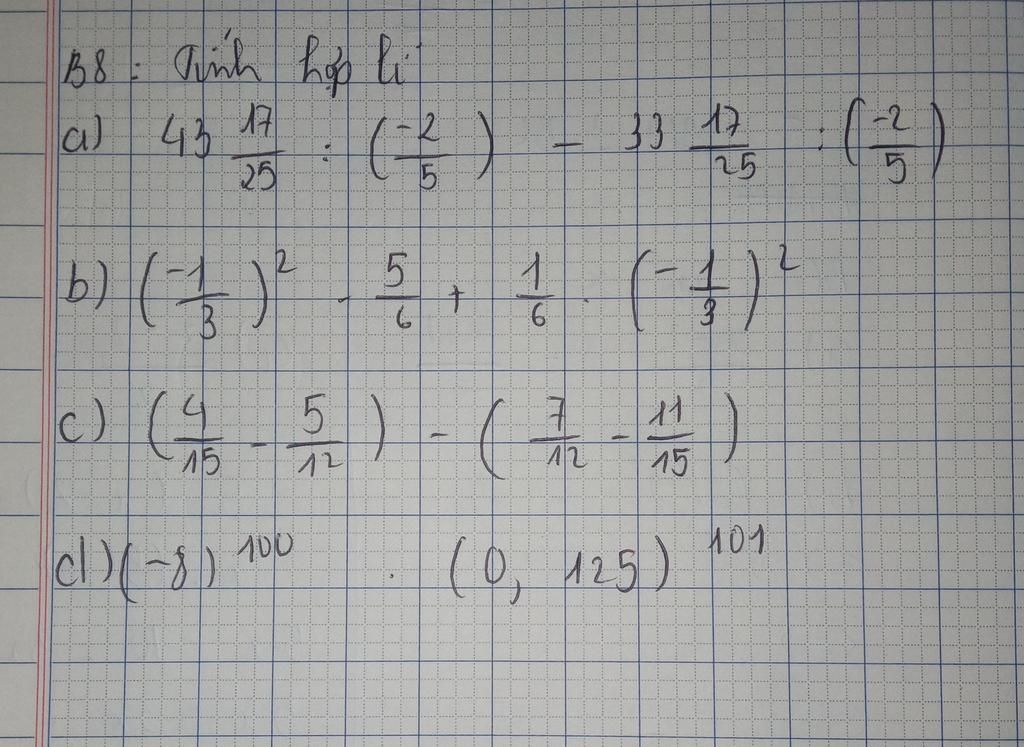 B8 : Tính hợp lí
a) 43 17/25 : (-2/5) - 33 17/25 : (-2/5)
b) (-1/3)² . 5/6 + 1/6 . (-1/3)²
c) (4/15 - 5/12) - (7/12 - 11/15)
d) (-8)¹⁰⁰ . (0, 125)¹⁰¹